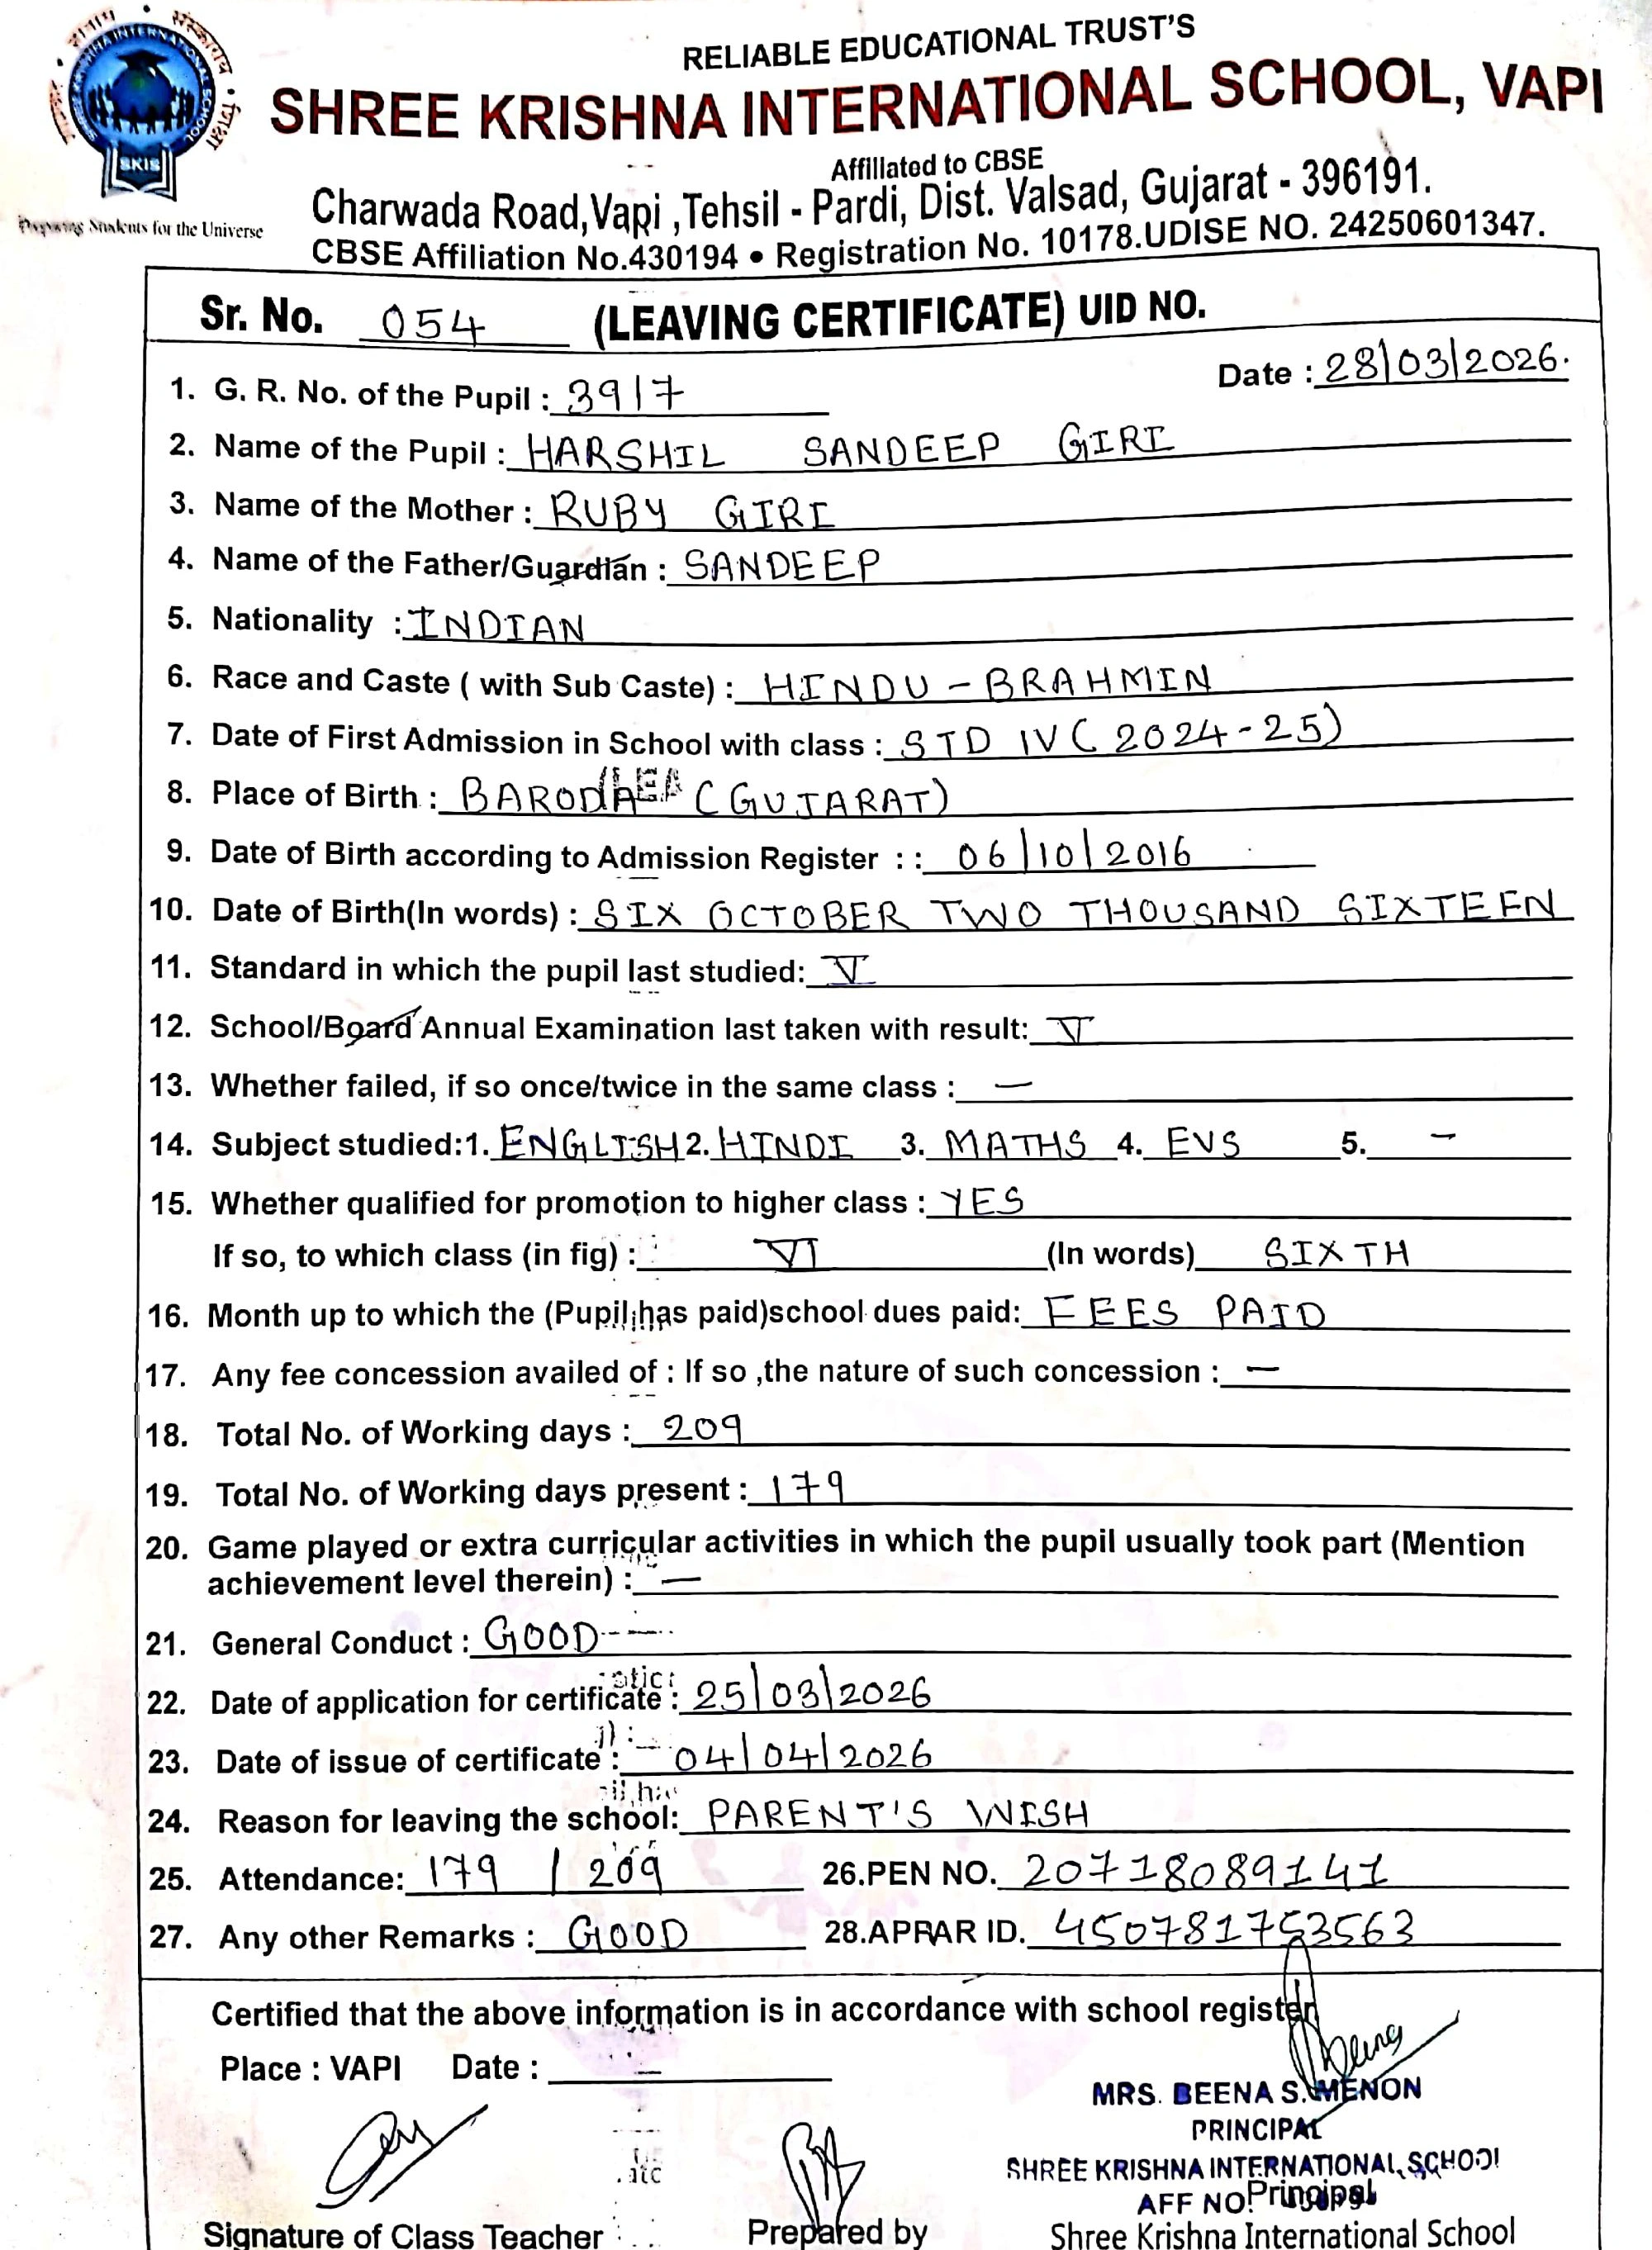 RELIABLE EDUCATIONAL TRUST'S
SHREE KRISHNA INTERNATIONAL SCHOOL, VAPI
SKIS
Affiliated to CBSE
Students for the Universe
Charwada Road,Vapi ,Tehsil - Pardi, Dist. Valsad, Gujarat - 396191.
CBSE Affiliation No.430194 • Registration No. 10178.UDISE NO. 24250601347.
Sr. No. 054 (LEAVING CERTIFICATE) UID NO.
Date : 28/03/2026.
1. G. R. No. of the Pupil : 3917
2. Name of the Pupil : HARSHIL SANDEEP GIRI
3. Name of the Mother : RUBY GIRI
4. Name of the Father/Guardian : SANDEEP
5. Nationality : INDIAN
6. Race and Caste ( with Sub Caste) : HINDU - BRAHMIN
7. Date of First Admission in School with class : STD IV ( 2024-25)
8. Place of Birth : BARODA (GUJARAT)
9. Date of Birth according to Admission Register : : 06/10/2016
10. Date of Birth(In words) : SIX OCTOBER TWO THOUSAND SIXTEEN
11. Standard in which the pupil last studied: V
12. School/Board Annual Examination last taken with result: V
13. Whether failed, if so once/twice in the same class : —
14. Subject studied:1. ENGLISH 2. HINDI 3. MATHS 4. EVS 5. -
15. Whether qualified for promotion to higher class : YES
If so, to which class (in fig) : VI (In words) SIXTH
16. Month up to which the (Pupil has paid)school dues paid: FEES PAID
17. Any fee concession availed of : If so ,the nature of such concession : —
18. Total No. of Working days : 209
19. Total No. of Working days present : 179
20. Game played or extra curricular activities in which the pupil usually took part (Mention
achievement level therein) : —
21. General Conduct : GOOD
22. Date of application for certificate : 25/03/2026
23. Date of issue of certificate : 04/04/2026
24. Reason for leaving the school: PARENT'S WISH
25. Attendance: 179 / 209 26.PEN NO. 20718089141
27. Any other Remarks : GOOD 28.APRAR ID. 450781753563
Certified that the above information is in accordance with school register
Place : VAPI Date :
MRS. BEENA S. MENON
PRINCIPAL
SHREE KRISHNA INTERNATIONAL SCHOOL
AFF NO.
Principal
Signature of Class Teacher Prepared by Shree Krishna International School